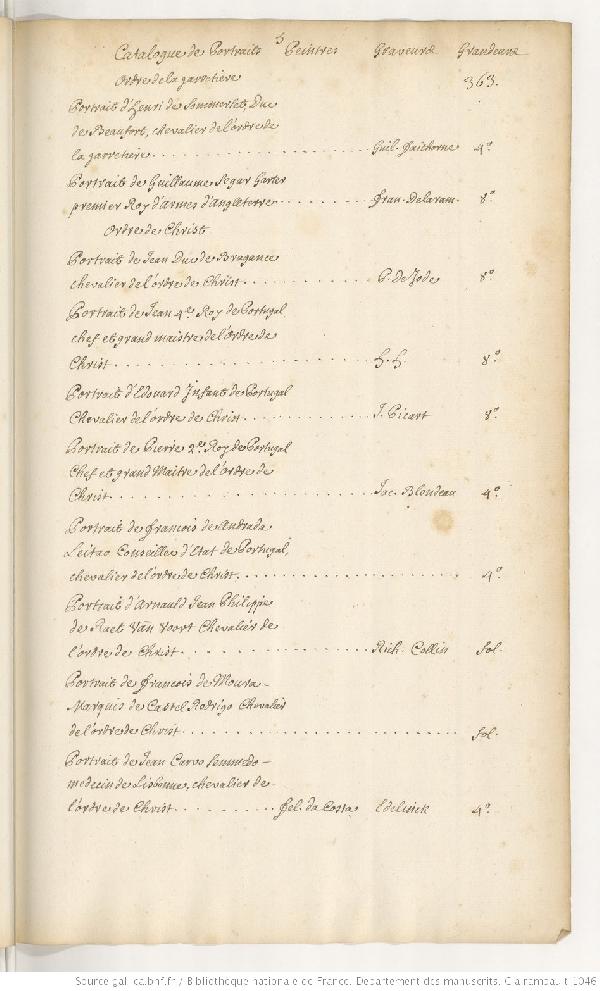 5
Catalogue de Portraits Peintres Graveurs Grandeurs
Ordre de la garretiere 363.
Portrait d'Henri de Sommerset, Duc
de Beaufort, chevalier de l'ordre de
la garretiere. Guil. Faithorne 4º
Portrait de Guillaume Segar Garter
premier Roy d'armes d'angleterre Fran. Delaram. 8º
Ordre de Christ
Portrait de Jean Duc de Bragance
chevalier de l'ordre de Christ P. de Jode 8º
Portrait de Jean 4e Roy de Portugal
chef et grand maistre de l'Ordre de
Christ H. H. 8º
Portrait d'Edouard Infant de Portugal
Chevalier de l'ordre de Christ J. Picart 8º
Portrait de Pierre 2e Roy de Portugal
Chef et grand Maitre de l'Ordre de
Christ. Jac. Blondeau 4º
Portrait de francois de Andrada
Leitao Conseiller d'Etat de Portugal,
chevalier de l'ordre de Christ. 4º
Portrait d'Arnauld Jean Philippe
de Raet Van Voort Chevalier de
l'ordre de Christ Rich. Collin fol.
Portrait de francois de Moura
Marquis de Castel Rodrigo Chevalier
de l'ordre de Christ. fol.
Portrait de Jean Curvo Semmedo
medecin de Lisbonne, chevalier de
l'ordre de Christ. fel. da Costa Edelinck 4º
Source gallica.bnf.fr / Bibliothèque nationale de France. Département des manuscrits. Clairambault 1046